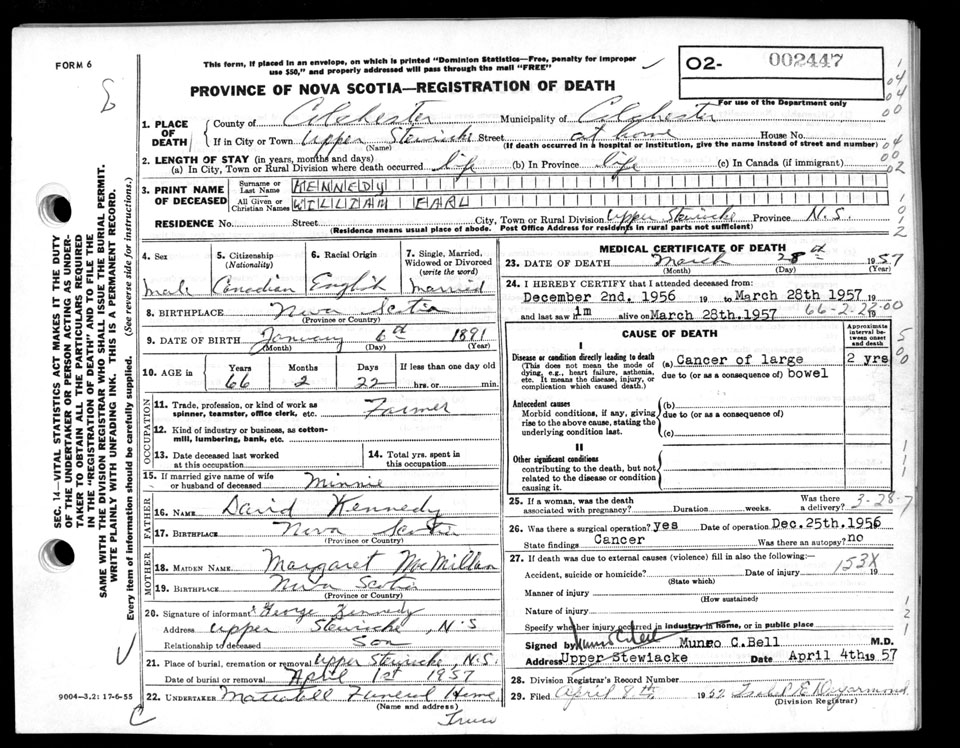 FORM 6
This form, if placed in an envelope, on which is printed "Dominion Statistics—Free, penalty for improper
use $50," and properly addressed will pass through the mail "FREE"
PROVINCE OF NOVA SCOTIA—REGISTRATION OF DEATH
O2- 002447
For use of the Department only
1. PLACE OF DEATH
County of Colchester Municipality of Colchester
If in City or Town Upper Stewiacke Street at home House No.
(Name) (If death occurred in a hospital or institution, give the name instead of street and number)
2. LENGTH OF STAY (in years, months and days)
(a) In City, Town or Rural Division where death occurred life (b) In Province life (c) In Canada (if immigrant)
3. PRINT NAME OF DECEASED
Surname or Last Name KENNEDY
All Given or Christian Names WILLIAM EARL
RESIDENCE No. Street City, Town or Rural Division Upper Stewiacke Province N.S.
(Residence means usual place of abode. Post Office Address for residents in rural parts not sufficient)
4. Sex 5. Citizenship (Nationality) 6. Racial Origin 7. Single, Married, Widowed or Divorced (write the word)
male Canadian English married
8. BIRTHPLACE Nova Scotia
(Province or Country)
9. DATE OF BIRTH January 6th 1891
(Month) (Day) (Year)
10. AGE in Years Months Days If less than one day old
66 2 22 hrs. or min.
OCCUPATION
11. Trade, profession, or kind of work as spinner, teamster, office clerk, etc. Farmer
12. Kind of industry or business, as cotton-mill, lumbering, bank, etc.
13. Date deceased last worked at this occupation 14. Total yrs. spent in this occupation
15. If married give name of wife or husband of deceased Minnie
FATHER
16. NAME David Kennedy
17. BIRTHPLACE Nova Scotia
(Province or Country)
MOTHER
18. MAIDEN NAME Margaret McMillan
19. BIRTHPLACE Nova Scotia
(Province or Country)
20. Signature of informant George Kennedy
Address Upper Stewiacke, N.S
Relationship to deceased Son
21. Place of burial, cremation or removal Upper Stewiacke, N.S.
Date of burial or removal April 1st 1957
22. UNDERTAKER Mattatall Funeral Home
(Name and address)
Truro
MEDICAL CERTIFICATE OF DEATH
23. DATE OF DEATH March 28th 1957
(Month) (Day) (Year)
24. I HEREBY CERTIFY that I attended deceased from:
December 2nd. 1956 19 to March 28th 1957 19
and last saw im alive on March 28th.1957 19
66-2-22-00
CAUSE OF DEATH
Approximate interval between onset and death
I
Disease or condition directly leading to death
(This does not mean the mode of dying, e.g., heart failure, asthenia, etc. It means the disease, injury, or complication which caused death.)
(a) Cancer of large 2 yrs
due to (or as a consequence of) bowel
Antecedent causes
Morbid conditions, if any, giving rise to the above cause, stating the underlying condition last.
(b)
due to (or as a consequence of)
(c)
II
Other significant conditions
contributing to the death, but not related to the disease or condition causing it.
25. If a woman, was the death associated with pregnancy? Duration weeks. Was there a delivery?
3-28-7
26. Was there a surgical operation? yes Date of operation Dec.25th.1956
State findings Cancer Was there an autopsy? no
27. If death was due to external causes (violence) fill in also the following:—
153X
Accident, suicide or homicide? Date of injury 19
(State which)
Manner of injury
(How sustained)
Nature of injury
Specify whether injury occurred in industry, in home, or in public place
Signed by Munro C.Bell M.D.
Address Upper Stewiacke Date April 4th 1957
28. Division Registrar's Record No.
29. Filed April 8th 1957
(Division Registrar)
SEC. 14—VITAL STATISTICS ACT MAKES IT THE DUTY
OF THE UNDERTAKER OR PERSON ACTING AS UNDER-
TAKER TO OBTAIN ALL THE PARTICULARS REQUIRED
IN THE "REGISTRATION OF DEATH" AND TO FILE THE
SAME WITH THE DIVISION REGISTRAR WHO SHALL ISSUE THE BURIAL PERMIT.
WRITE PLAINLY WITH UNFADING INK. THIS IS A PERMANENT RECORD.
Every item of information should be carefully supplied. (See reverse side for instructions.)
9004—3,2: 17-6-55